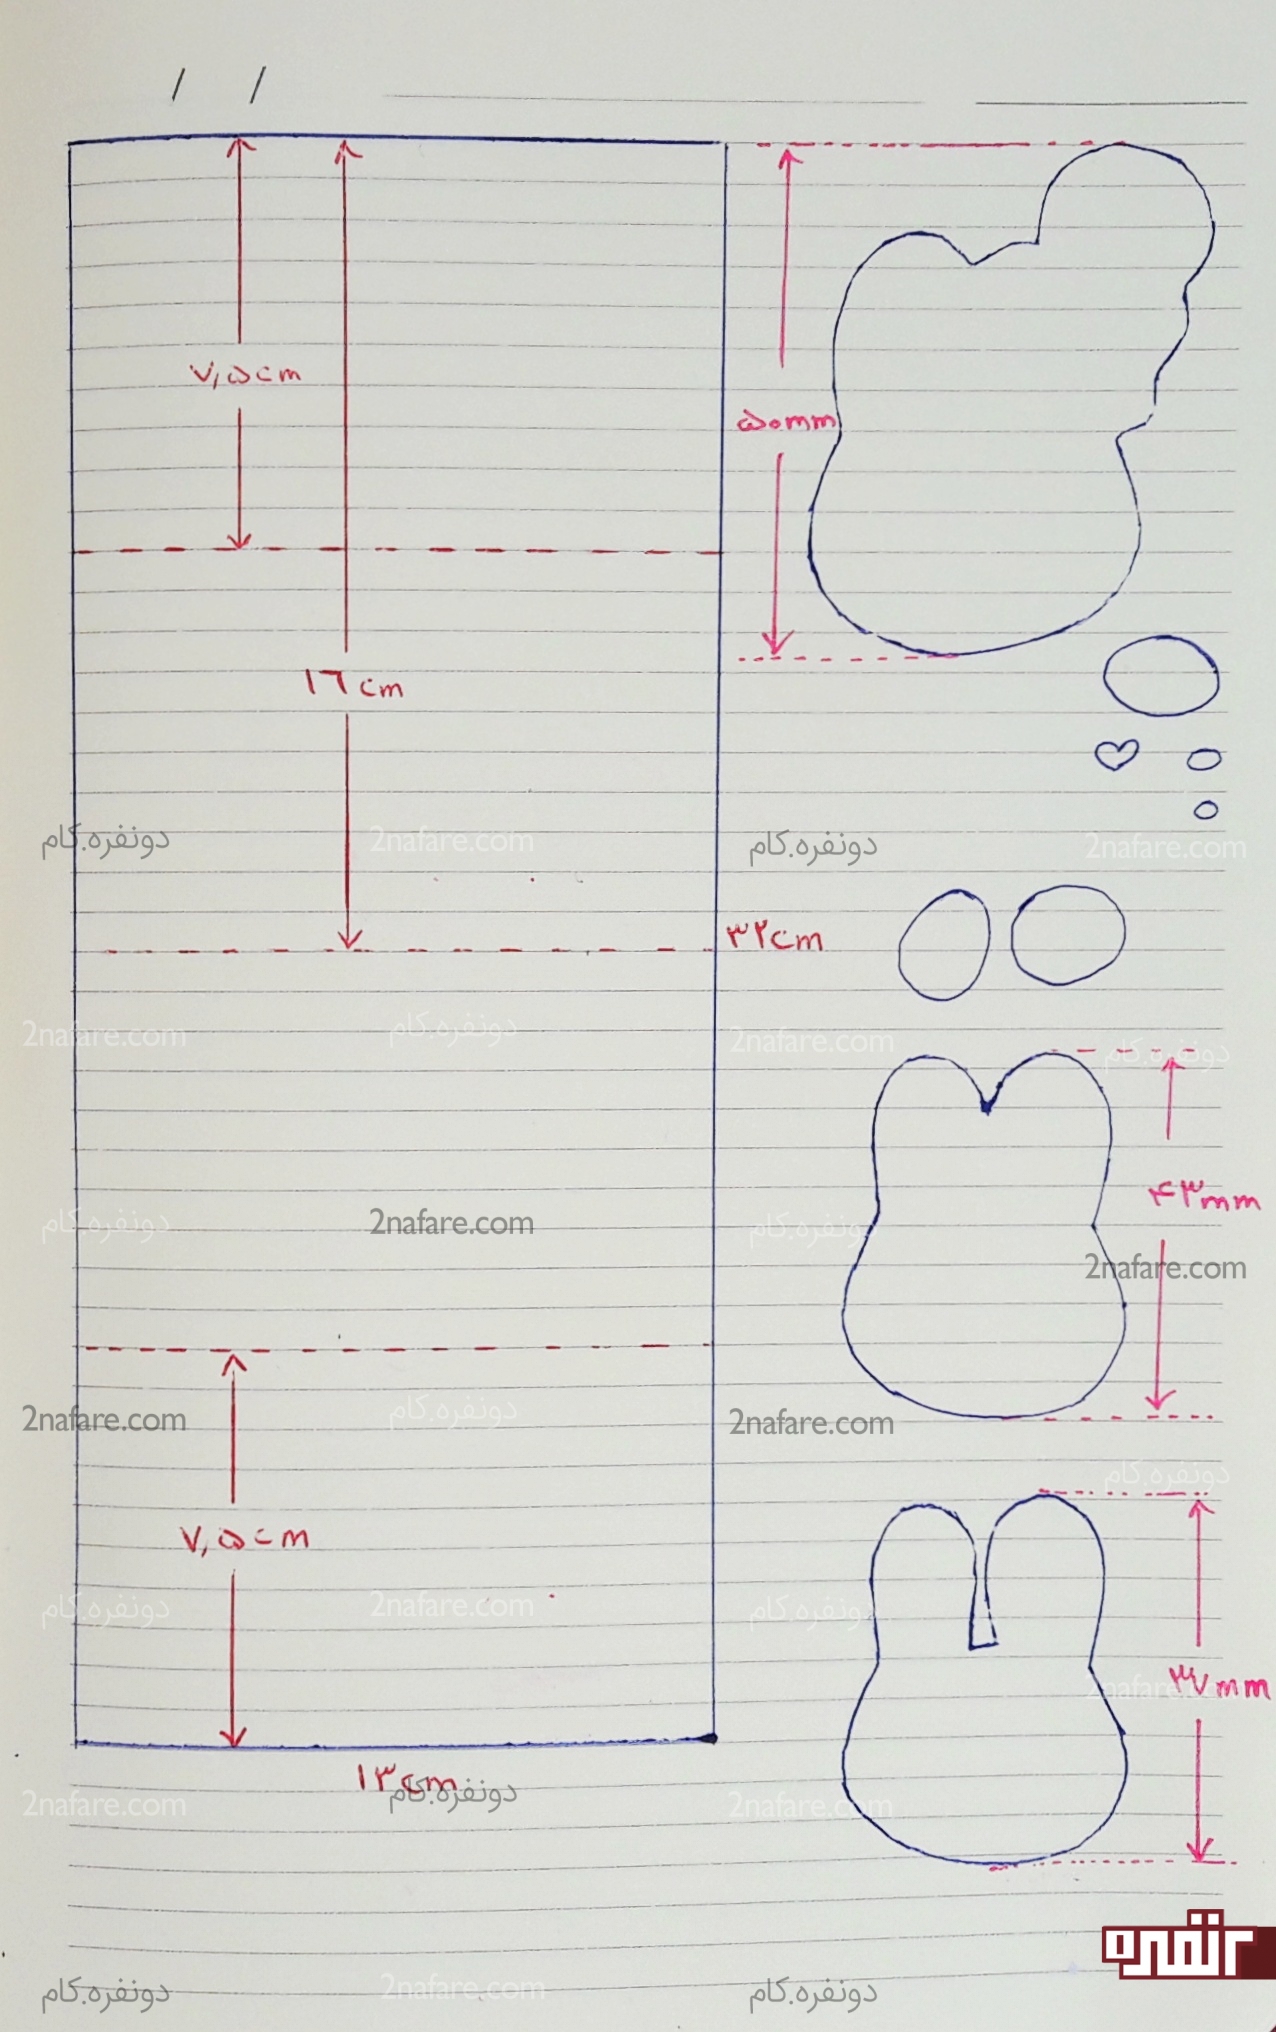 / /
۷,۵cm
۵۰mm
۱۶cm
دونفره.کام 2nafare.com دونفره.کام 2nafare.com
۳۲cm
2nafare.com دونفره.کام 2nafare.com دونفره.کام
۴۳mm
دونفره.کام 2nafare.com دونفره.کام 2nafare.com
2nafare.com دونفره.کام 2nafare.com دونفره.کام
۷,۵cm
دونفره.کام 2nafare.com دونفره.کام 2nafare.com
۳۷mm
۱۳cm
2nafare.com دونفره.کام 2nafare.com
دونفره.کام 2nafare.com دونفره.کام